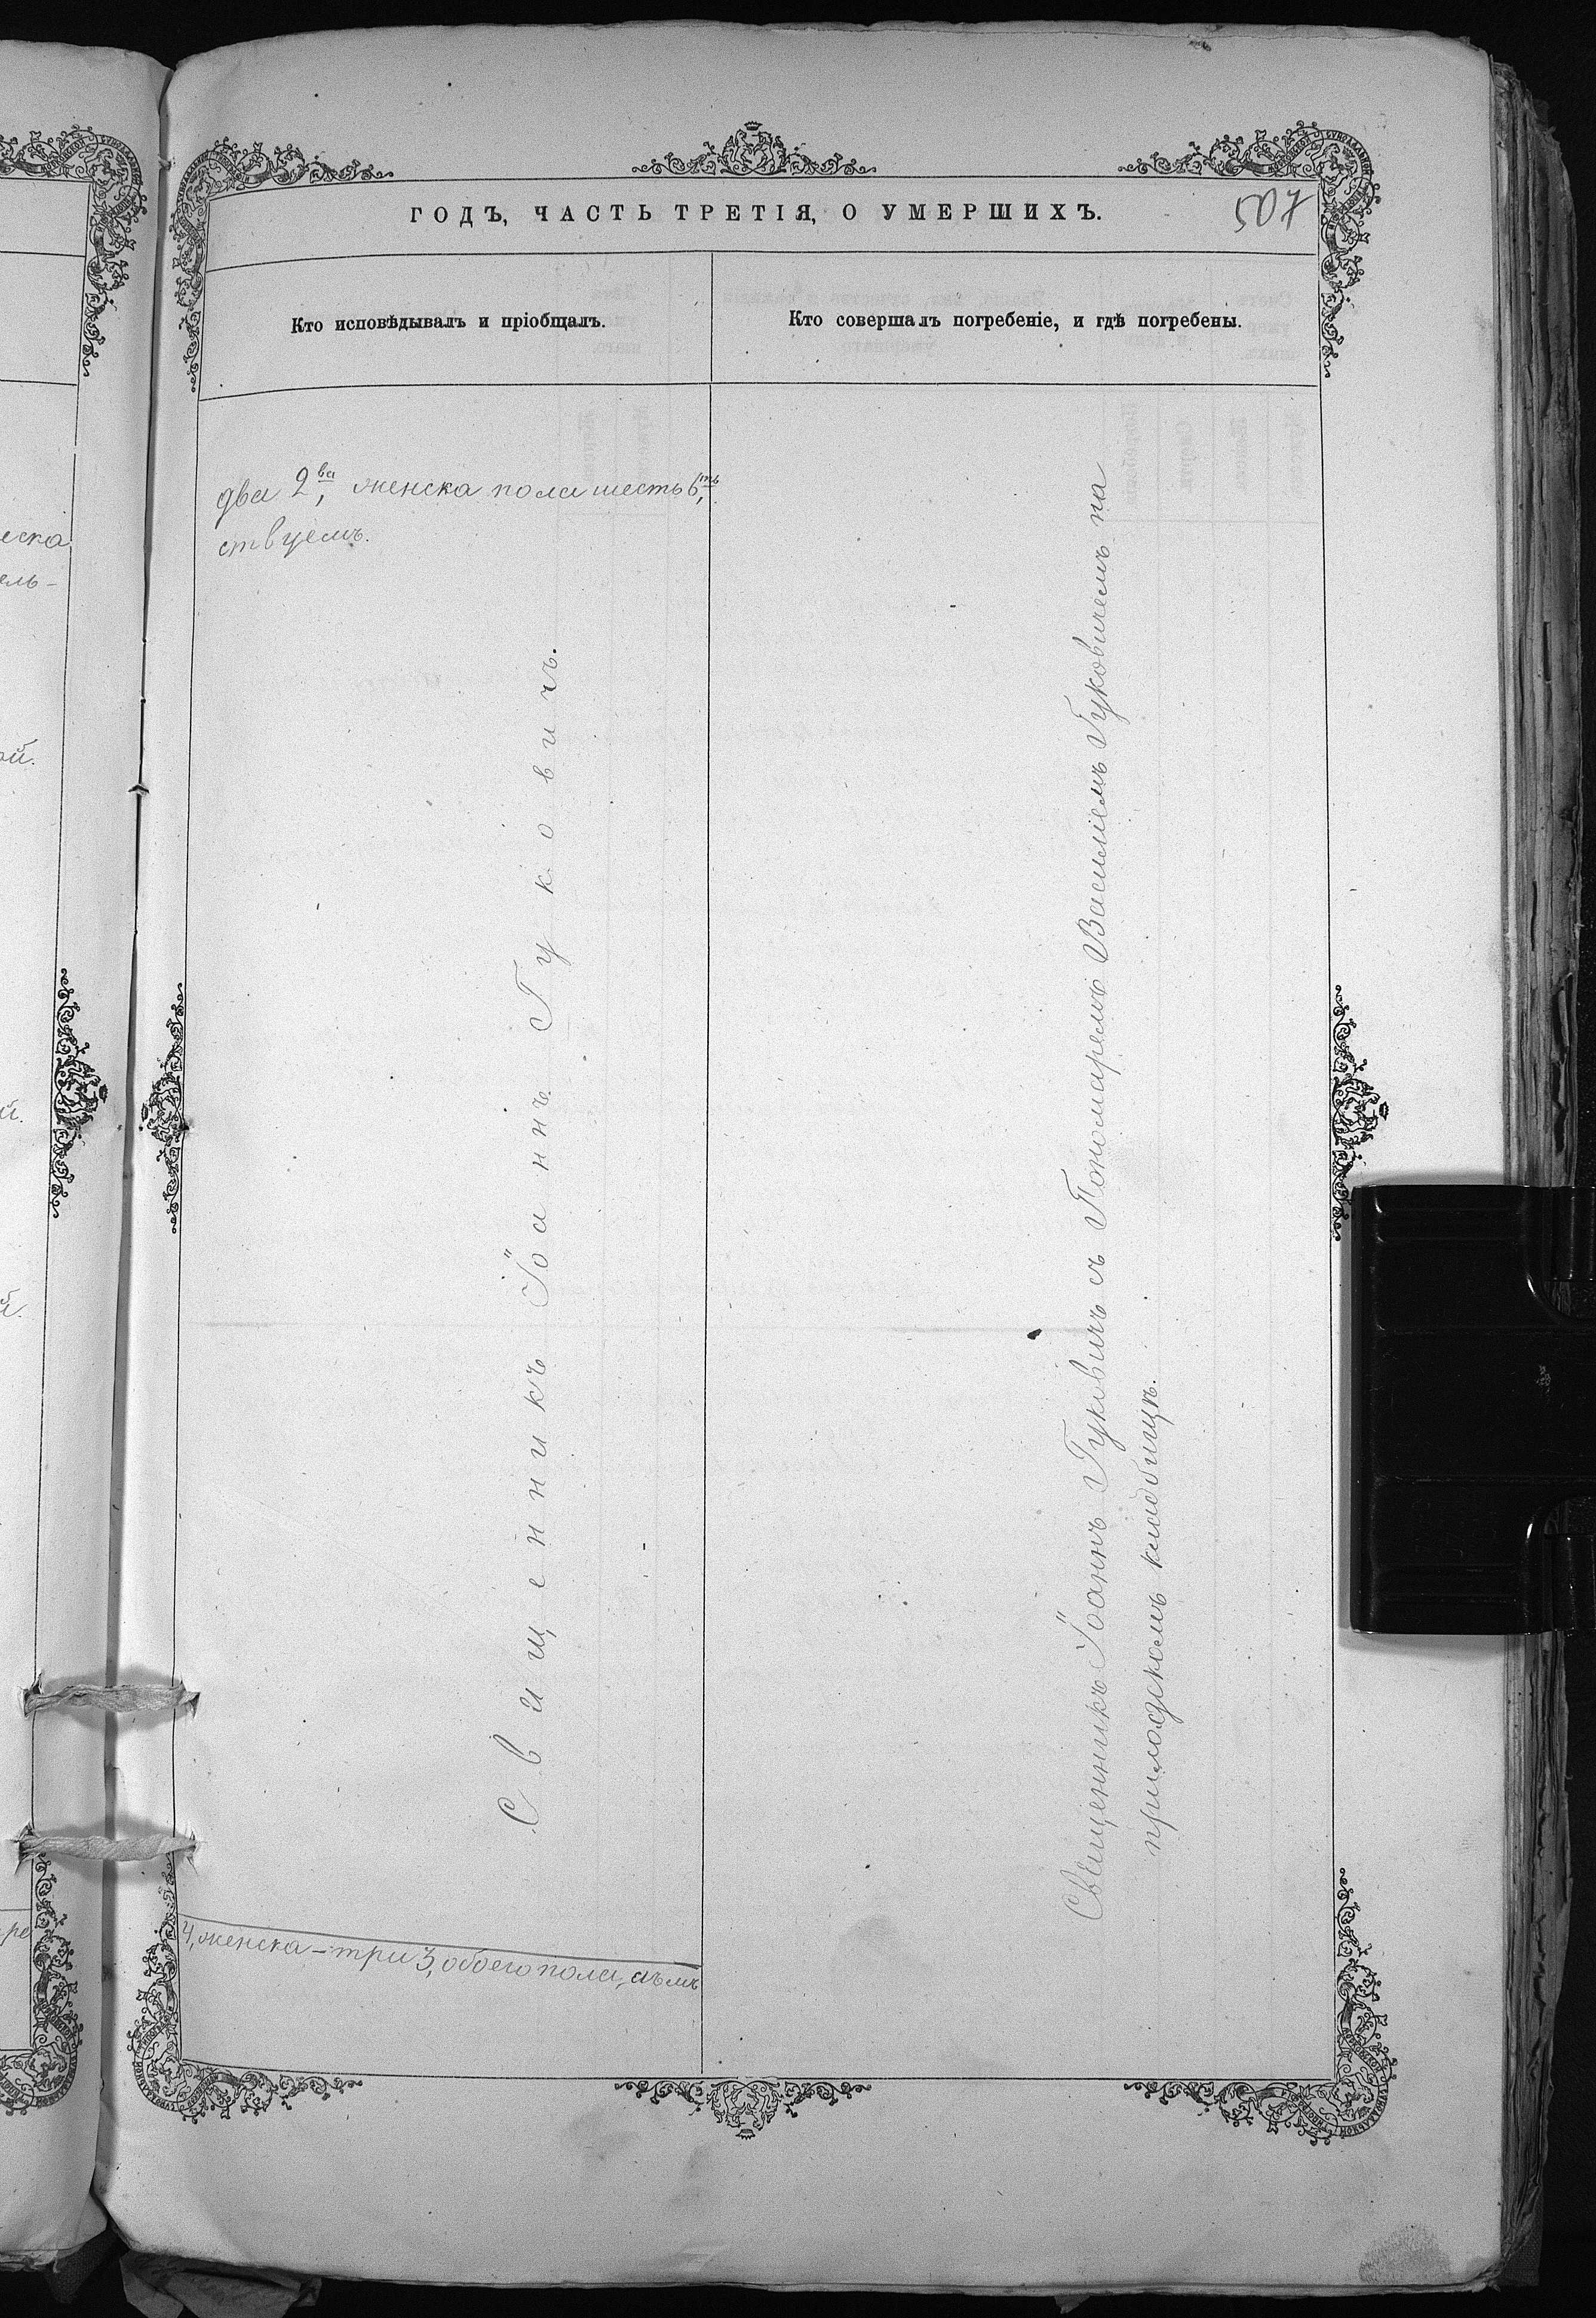 ГОДЪ, ЧАСТЬ ТРЕТІЯ, О УМЕРШИХЪ.
507
Кто исповѣдывалъ и пріобщалъ.
Кто совершалъ погребеніе, и гдѣ погребены.
два 2ва, женска пола шесть 6ть,
ствуемъ.
Священникъ Іоаннъ Гуковичъ.
Священникъ Іоаннъ Гуковичъ съ Пономаремъ Василіемъ Гуковичемъ на
приходскомъ кладбищѣ.
4, женска – три 3, обоего пола,
еска
ель-
ой.
й.
й.